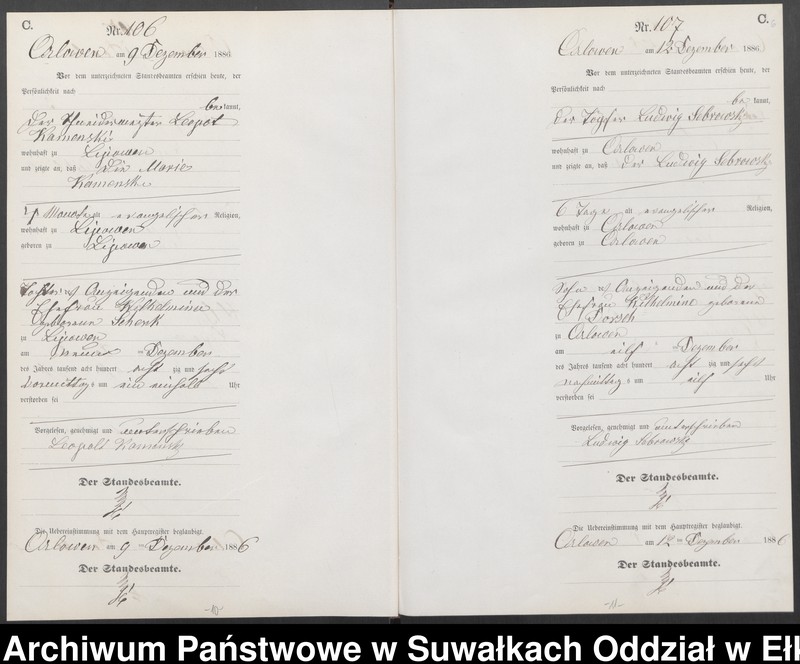 C.
Nr. 106
Orlowen am 9 Dezember 1886
Vor dem unterzeichneten Standesbeamten erschien heute, der
Persönlichkeit nach
be kannt,
der Schneidermeister Leopold
Kamenski
wohnhaft zu Lipowen
und zeigte an, daß die Marie
Kamenski
evangelischer Religion,
wohnhaft zu Lipowen
geboren zu Lipowen
Tochter Anzeigenden und der
Ehefrau Wilhelmine
geborenen Schenk
zu Lipowen
am Dezember
des Jahres tausend acht hundert acht zig und sechs
Vormittags um ein einhalb Uhr
verstorben sei
Vorgelesen, genehmigt und unterschrieben
Leopold Kamensky
Der Standesbeamte.
Die Uebereinstimmung mit dem Hauptregister beglaubigt.
Orlowen am 9 ten Dezember 1886
Der Standesbeamte.
-10-
C.
Nr. 107
Orlowen am 12 Dezember 1886
Vor dem unterzeichneten Standesbeamten erschien heute, der
Persönlichkeit nach
be kannt,
der Töpfer Ludwig Sobrowsky
wohnhaft zu Orlowen
und zeigte an, daß der Ludwig Sobrowsky
6 Tage alt evangelischer Religion,
wohnhaft zu Orlowen
geboren zu Orlowen
Sohn Anzeigenden und der
Ehefrau Wilhelmine geborenen
Dorsch
zu Orlowen
am eilf ten Dezember
des Jahres tausend acht hundert acht zig und sechs
nachmittags um eilf Uhr
verstorben sei
Vorgelesen, genehmigt und unterschrieben
Ludwig Sobrowsky
Der Standesbeamte.
Die Uebereinstimmung mit dem Hauptregister beglaubigt.
Orlowen am 12 ten Dezember 1886
Der Standesbeamte.
-11-
Archiwum Państwowe w Suwałkach Oddział w Eł